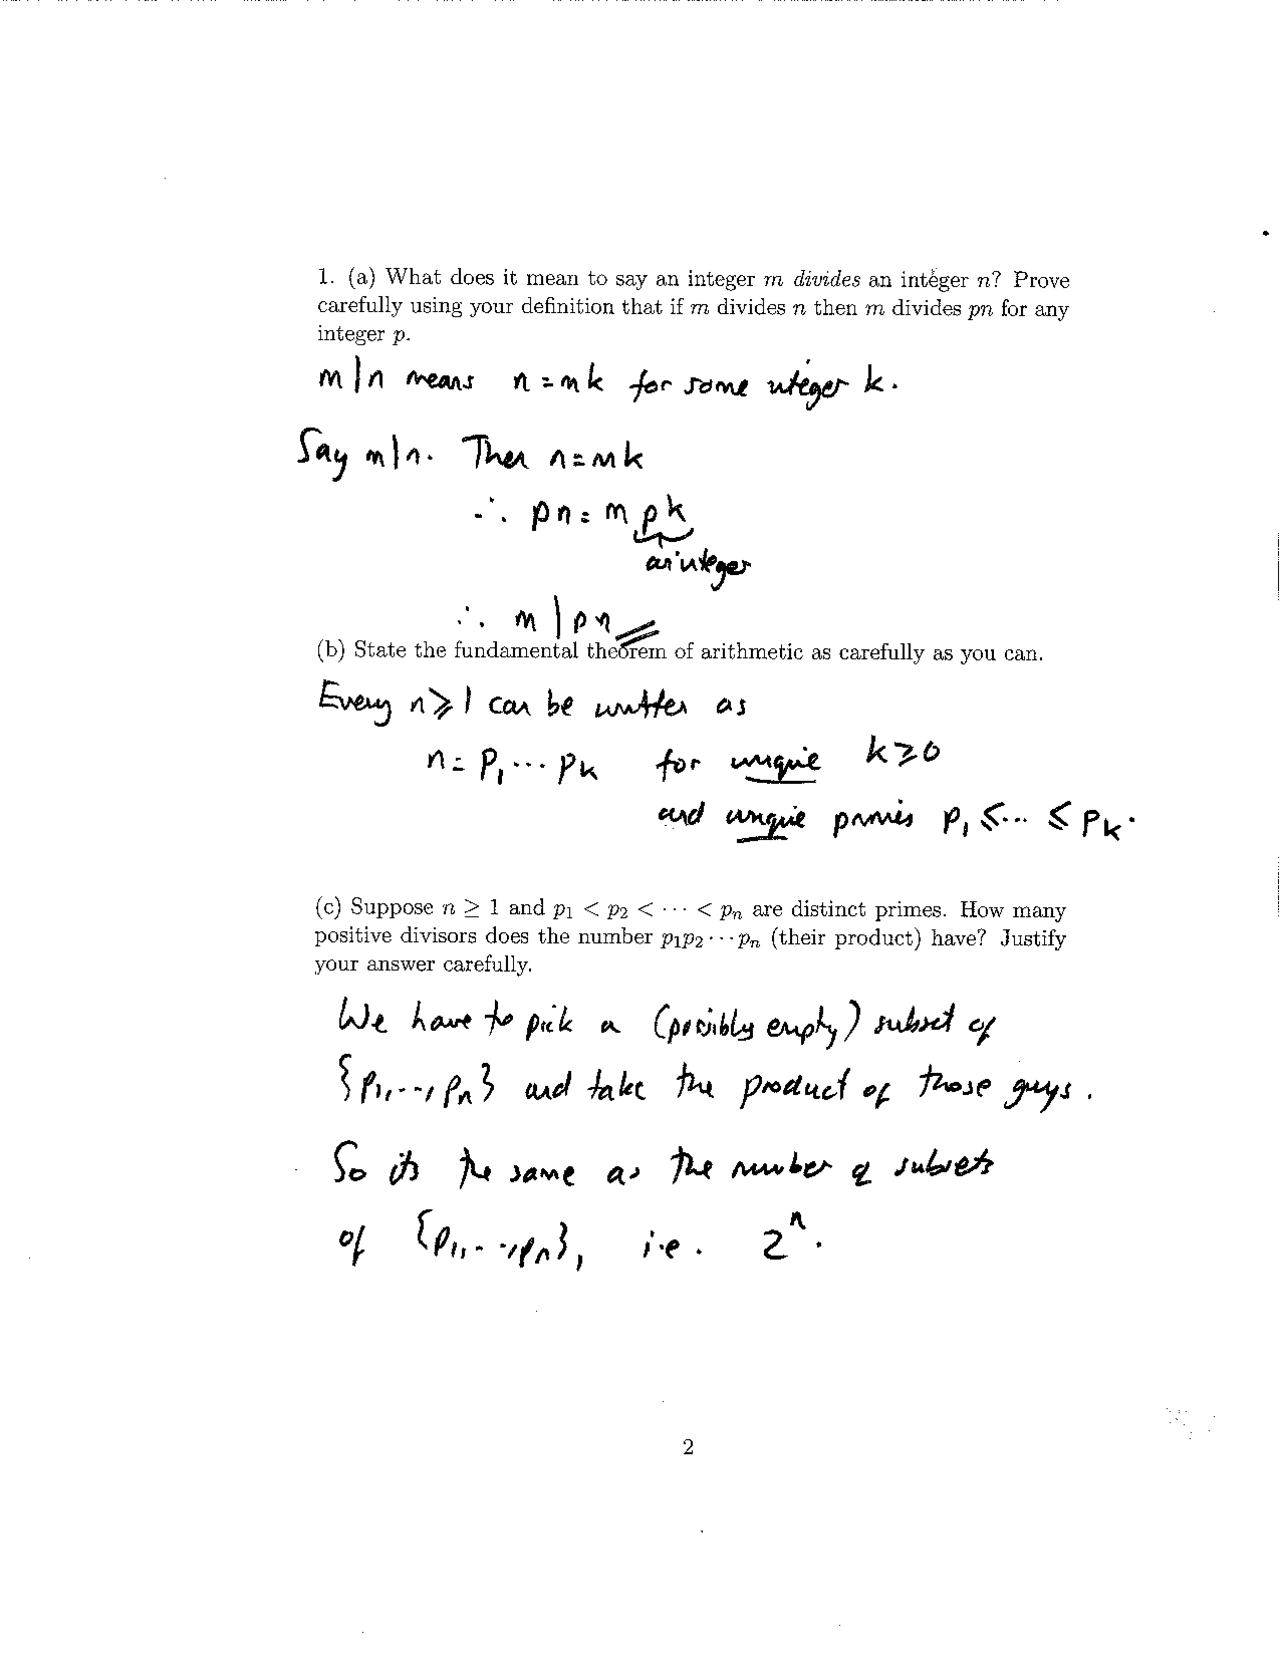 1. (a) What does it mean to say an integer m divides an integer n? Prove
carefully using your definition that if m divides n then m divides pn for any
integer p.
m|n means n=mk for some integer k.
Say m|n. Then n=mk
∴ pn = m pk
an integer
∴ m | pn
(b) State the fundamental theorem of arithmetic as carefully as you can.
Every n ⩾ 1 can be written as
n = p₁ ··· pₖ for unique k ⩾ 0
and unique primes p₁ ⩽ ··· ⩽ pₖ.
(c) Suppose n ≥ 1 and p₁ < p₂ < ··· < pₙ are distinct primes. How many
positive divisors does the number p₁p₂···pₙ (their product) have? Justify
your answer carefully.
We have to pick a (possibly empty) subset of
{p₁,..., pₙ} and take the product of those guys.
So its the same as the number of subsets
of {p₁,...,pₙ}, i.e. 2ⁿ.
2